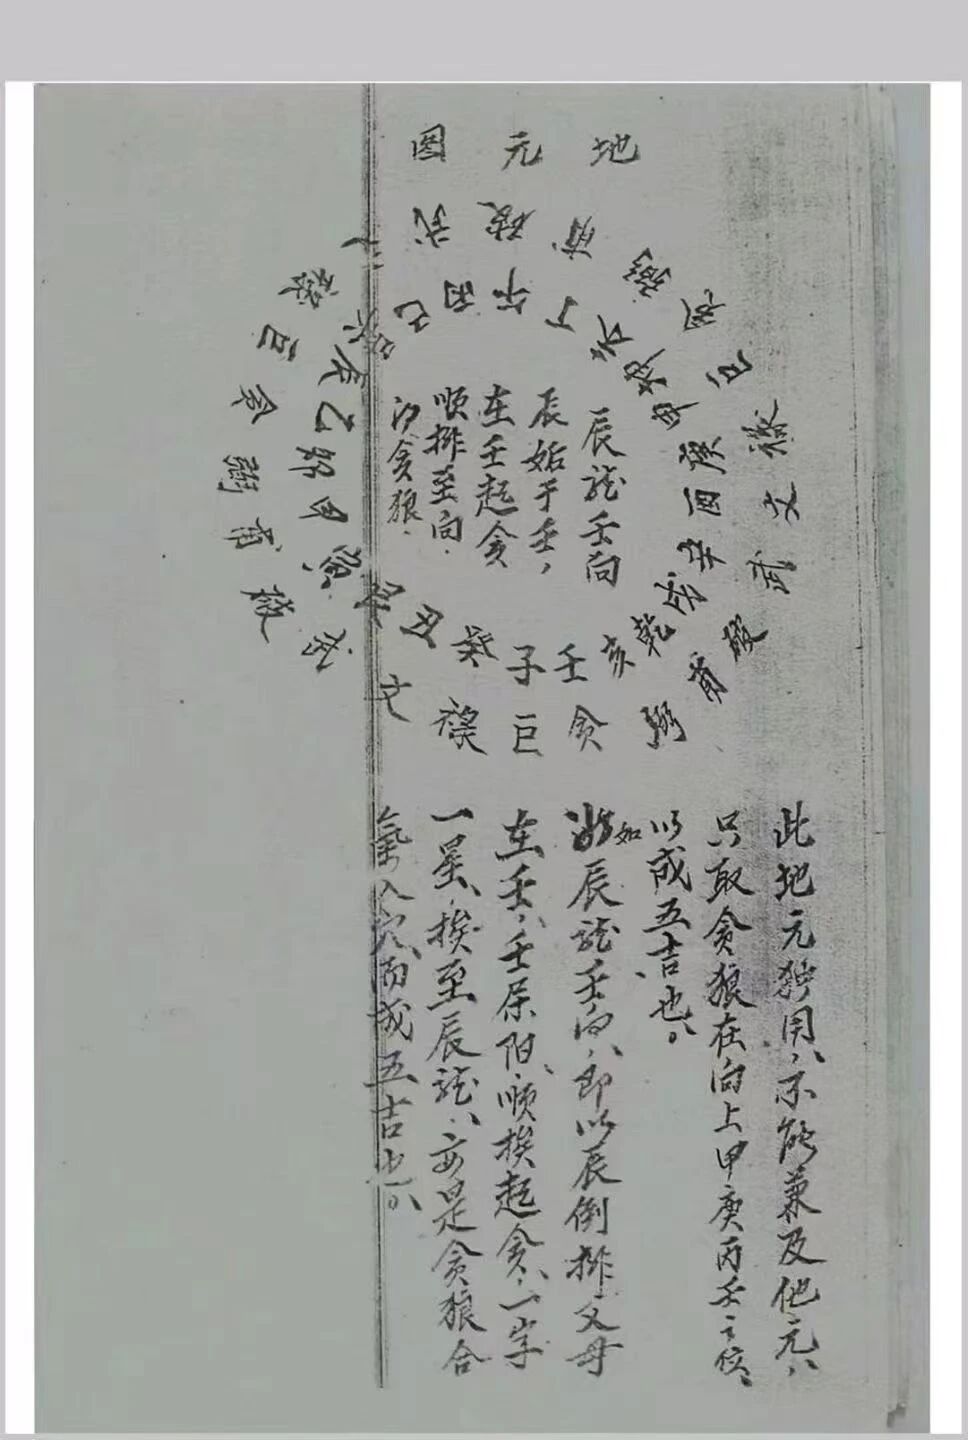 地元图
武破甫弼贪巨禄文武破甫弼贪巨禄文武破甫弼贪巨禄文
丙午丁未坤申庚酉辛戌乾亥壬子癸丑艮寅甲卯乙辰巽巳
辰龙壬向
辰姤于壬，
在壬起贪
顺排至向.
为贪狼.
此地元独用、不能兼及他元、
只取贪狼在向上甲庚丙壬之位、
以成五吉也。
如辰龙壬向、即以辰倒排父母
在壬、壬属阳、顺挨起贪、一字
一星、挨至辰龙、亦是贪狼合
氣入穴、而成五吉也。